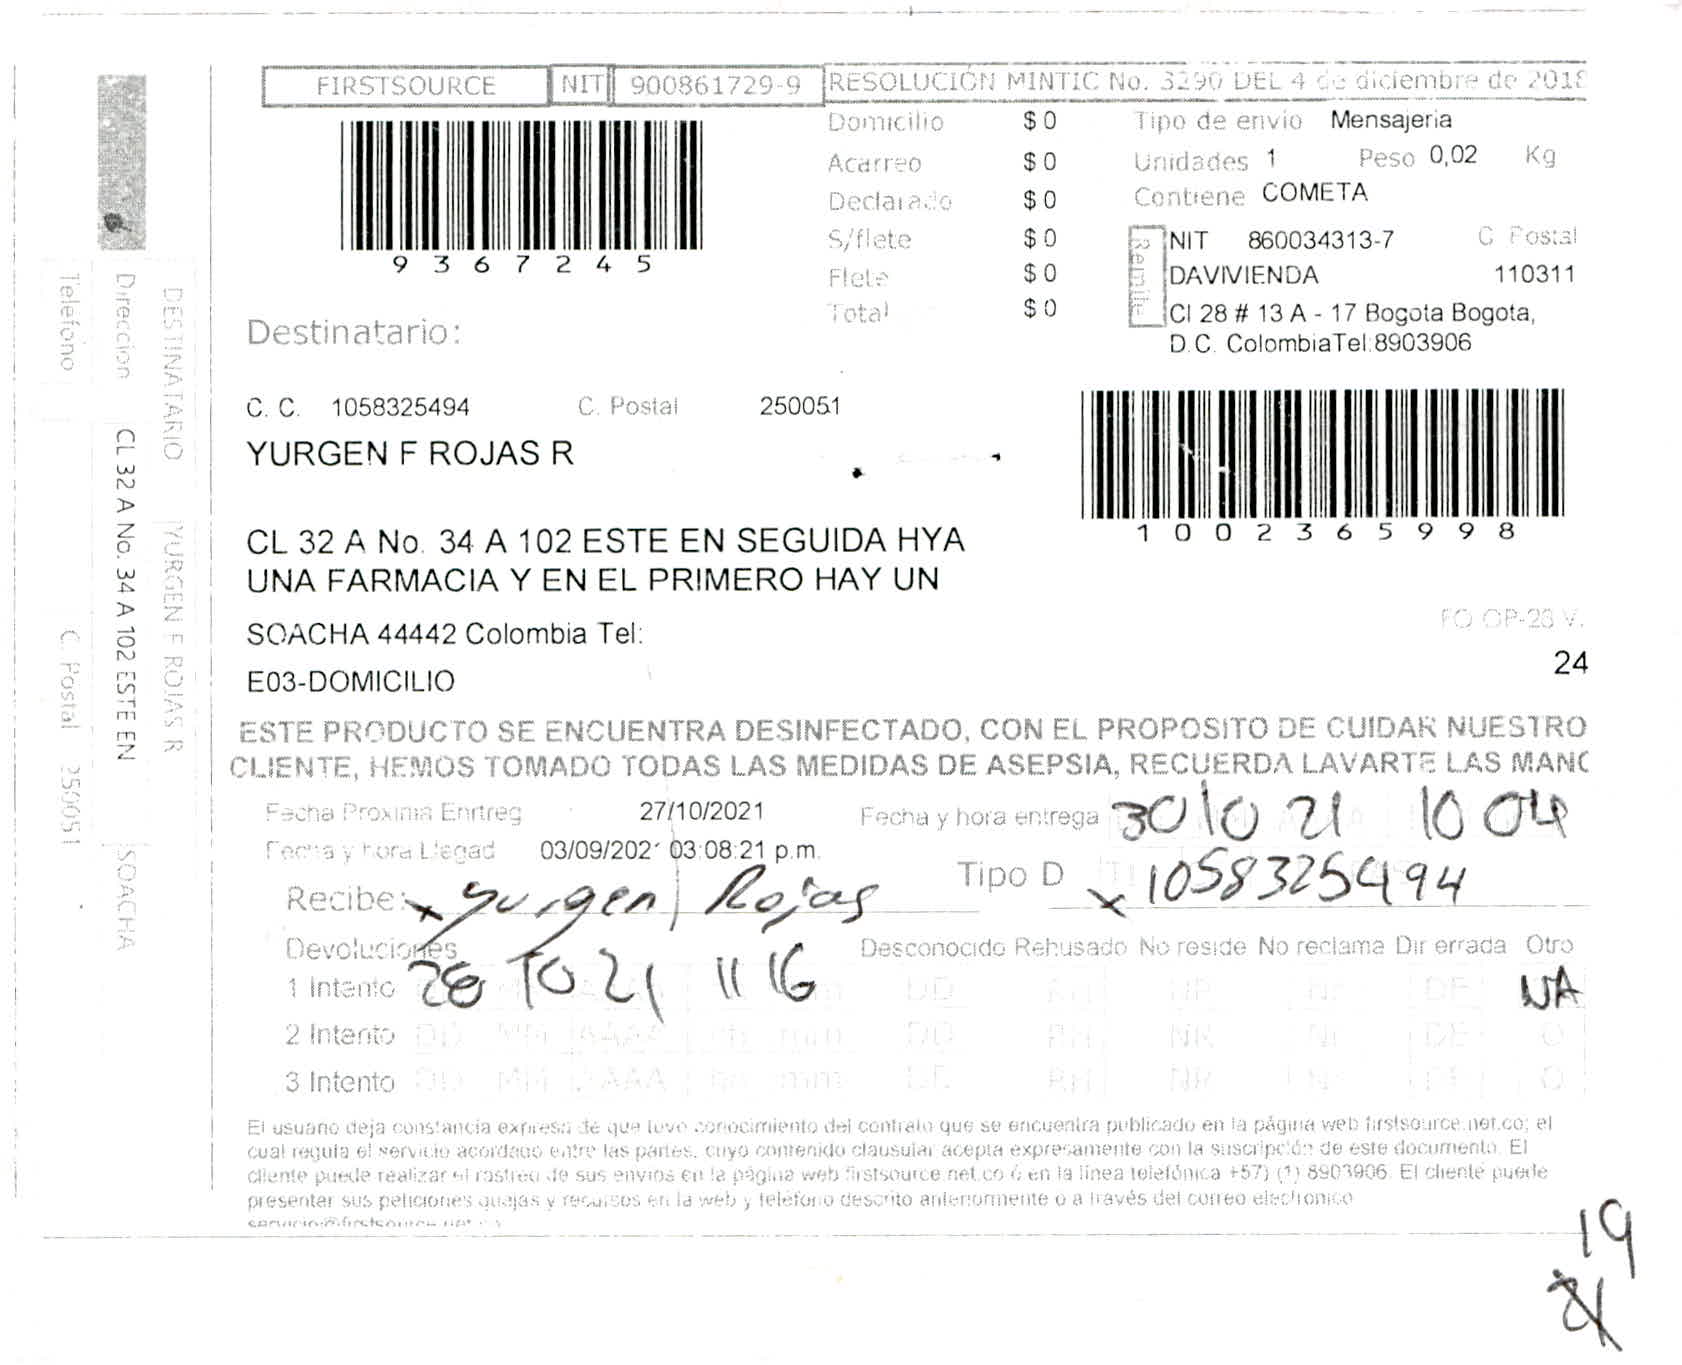 FIRSTSOURCE NIT 900861729-9 RESOLUCIÓN MINTIC No. 3290 DEL 4 de diciembre de 2018
Domicilio $ 0 Tipo de envio Mensajeria
Acarreo $ 0 Unidades 1 Peso 0,02 Kg
Declarado $ 0 Contiene COMETA
S/flete $ 0
Flete $ 0
Total $ 0
9367245
Remite
NIT 860034313-7 C Postal
DAVIVIENDA 110311
Cl 28 # 13 A - 17 Bogota Bogota,
D.C. ColombiaTel:8903906
Destinatario:
C. C. 1058325494 C. Postal 250051
YURGEN F ROJAS R
1002365998
CL 32 A No. 34 A 102 ESTE EN SEGUIDA HYA
UNA FARMACIA Y EN EL PRIMERO HAY UN
SOACHA 44442 Colombia Tel:
E03-DOMICILIO
FO OP-28 V.
24
ESTE PRODUCTO SE ENCUENTRA DESINFECTADO, CON EL PROPOSITO DE CUIDAR NUESTRO
CLIENTE, HEMOS TOMADO TODAS LAS MEDIDAS DE ASEPSIA, RECUERDA LAVARTE LAS MANC
Fecha Proxima Enrtreg 27/10/2021 Fecha y hora entrega 30 10 21 10 04
Fecha y hora Llegad 03/09/202 03:08:21 p.m.
Recibe: x Yurgen Rojas Tipo D x 1058325494
Devoluciones Desconocido Rehusado No reside No reclama Dir errada Otro
1 Intento 28 10 21 11 16 DD RH NR Nr DE NA
2 Intento DD MM AAAA hh mm DD RH NR Nr DE O
3 Intento DD MM AAAA hh mm DD RH NR Nr DE O
El usuario deja constancia expresa de que tuvo conocimiento del contrato que se encuentra publicado en la página web firstsource.net.co; el
cual regula el servicio acordado entre las partes, cuyo contenido clausular acepta expresamente con la suscripción de este documento. El
cliente puede realizar el rastreo de sus envios en la página web firstsource.net.co ó en la línea telefónica +57) (1) 8903906. El cliente puede
presentar sus peticiones quejas y recursos en la web y teléfono descrito anteriormente o a través del correo electronico
servicio@firstsource.net.co
19
DESTINATARIO YURGEN F ROJAS R
Direccion CL 32 A No. 34 A 102 ESTE EN SOACHA
Telefono C. Postal 250051